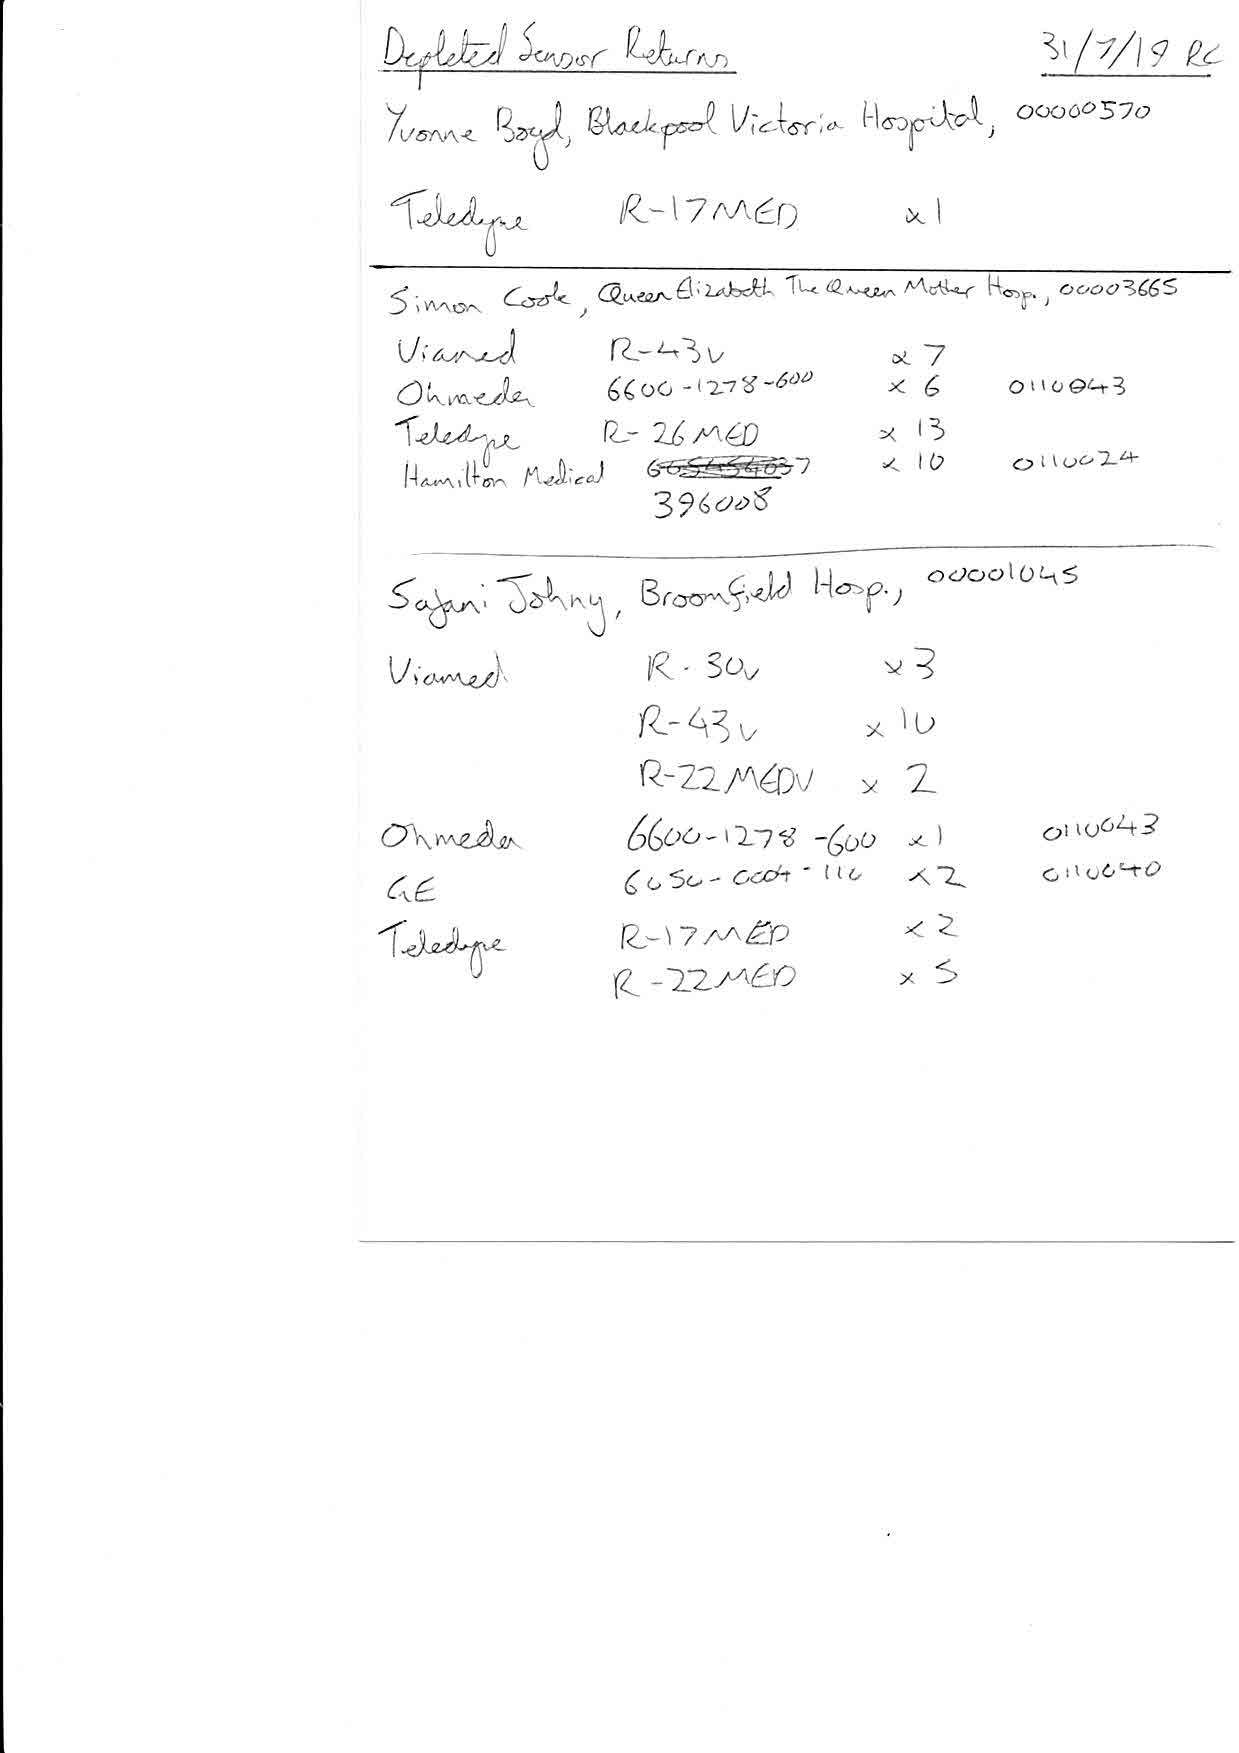 Depleted Sensor Returns 31/7/19 RC
Yvonne Boyd, Blackpool Victoria Hospital, 00000570
Teledyne R-17MED x1
Simon Cook, Queen Elizabeth The Queen Mother Hosp., 00003665
Viamed R-43v x 7
Ohmeda 6600-1278-600 x 6 0110043
Teledyne R-26MED x 13
Hamilton Medical x 10 0110024
396008
Sajani Johny, Broomfield Hosp., 00001045
Viamed R-30v x3
R-43v x 10
R-22MEDV x 2
Ohmeda 6600-1278-600 x1 0110043
GE 6050-0004-110 x2 0110040
Teledyne R-17MED x 2
R-22MED x 5